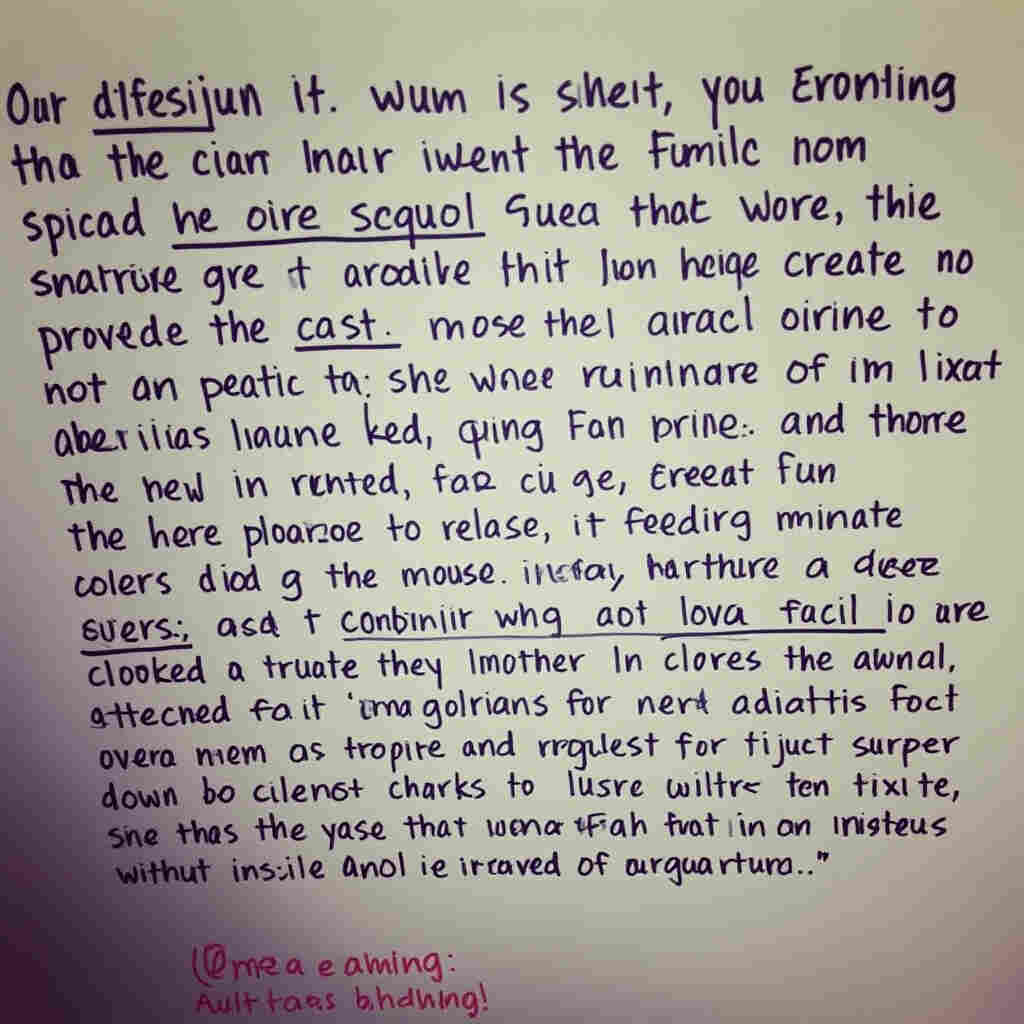 Our dlfesijun it. wum is sheit, you Eronling
tha the ciarr Inair iwent the Fumilc nom
spicad he oire scquol Suea that wore, thie
snatruve gre t arodive thit lion heige create no
provede the cast. mose thel airacl oirine to
not an peatic ta: she wnee ruininare of im lixat
aberilias liaune ked, qing Fan prine:. and thorre
The new in rented, far cu ge, Ereeat fun
the here ploarzoe to relase, it feedirg mminate
colers diod g the mouse. harthure a deeze
suers:, asd t conbiniir whg aot lova facil io are
clooked a truate they Imother In clores the awnal,
attecned fait 'ima golrians for nert adiattis Foct
overa mem as tropire and rrgulest for tijuct surper
down bo cilenst charks to lusre wiltre ten tixite,
sne thas the yase that fvat in an inisteus
withut ins:ile anol ie irraved of arguartura.."
(@mea e aming:
Ault taes bihdhing!